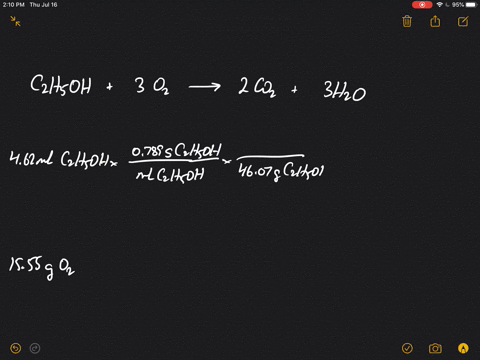 2:10 PM Thu Jul 16 95%
C2H5OH + 3 O2 → 2 CO2 + 3H2O
4.62ml C2H5OH × 0.789g C2H5OH / ml C2H5OH × / 46.07g C2H5OH
15.55 g O2